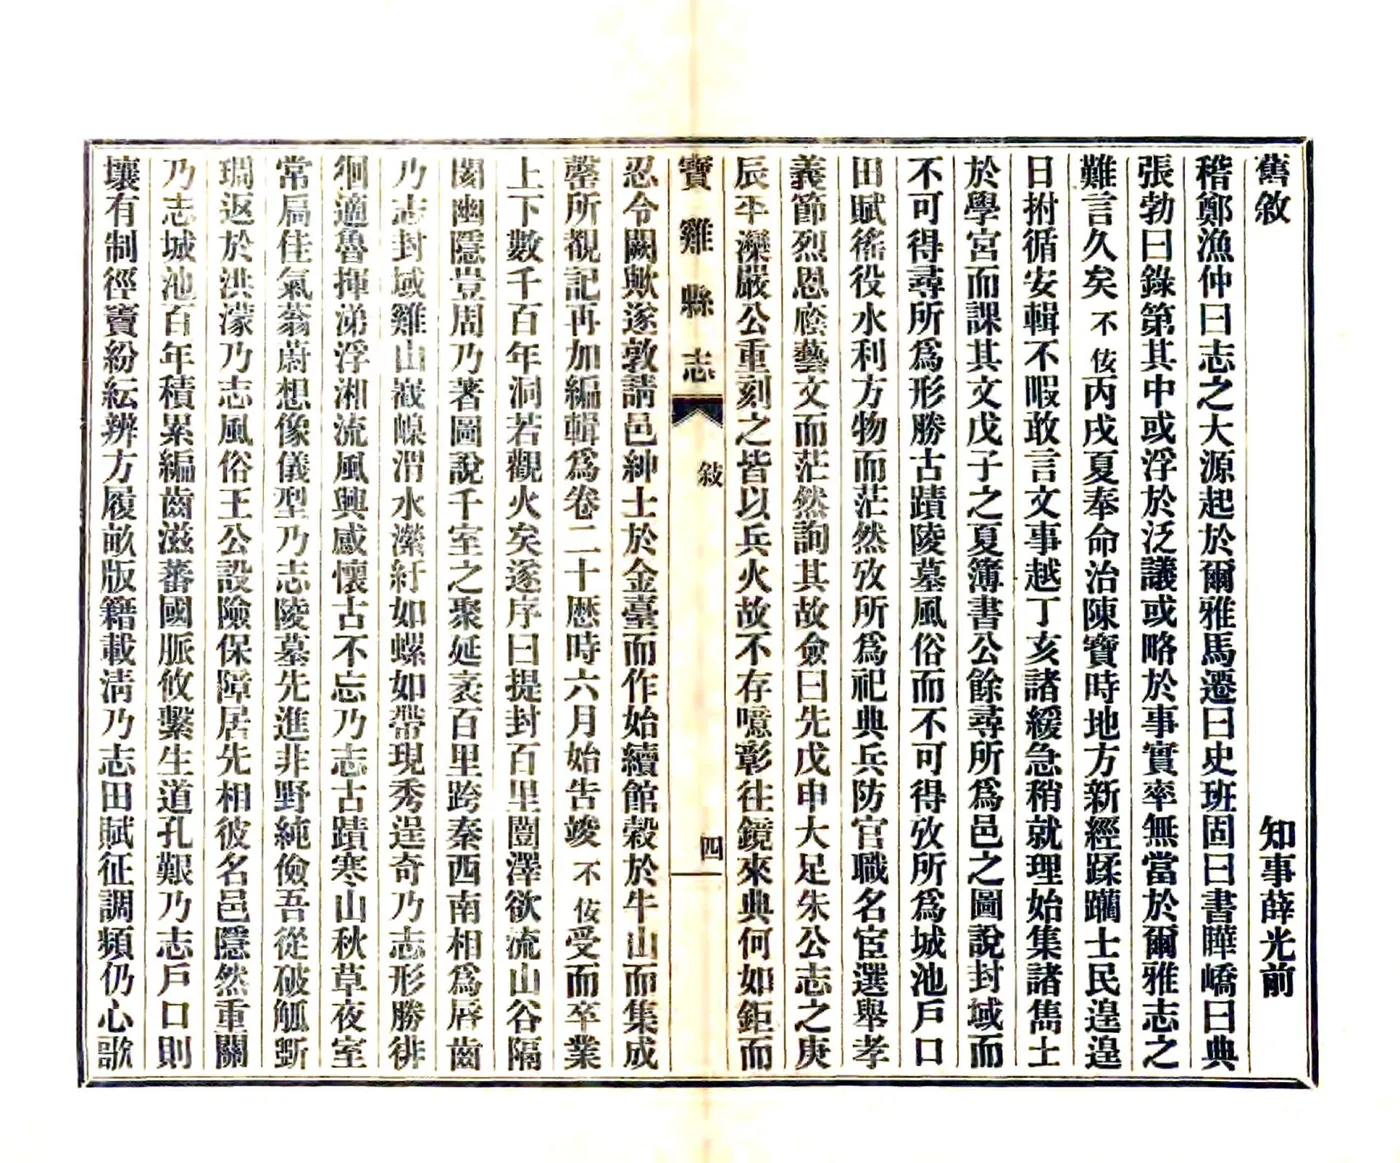 舊敘
知事薛光前
稽鄭漁仲曰志之大源起於爾雅馬遷曰史班固曰書曄嶠曰典
張勃曰錄第其中或浮於泛議或略於事實率無當於爾雅志之
難言久矣不佞丙戌夏奉命治陳寶時地方新經蹂躪士民遑遑
日拊循安輯不暇敢言文事越丁亥諸緩急稍就理始集諸雋士
於學宮而課其文戊子之夏簿書公餘尋所為邑之圖說封域而
不可得尋所爲形勝古蹟陵墓風俗而不可得攷所爲城池戶口
田賦徭役水利方物而茫然攷所爲祀典兵防官職名宦選舉孝
義節烈恩廕藝文而茫然詢其故僉曰先戊申大足朱公志之庚
辰平灤嚴公重刻之皆以兵火故不存噫彰往鏡來典何如鉅而
寶雞縣志
敘
四
忍令闕歟遂敦請邑紳士於金臺而作始續館穀於牛山而集成
罄所覩記再加編輯爲卷二十歷時六月始告竣不佞受而卒業
上下數千百年洞若觀火矣遂序曰提封百里闓澤欲流山谷隔
閡幽隱豈周乃著圖說千室之聚延袤百里跨秦西南相爲脣齒
乃志封域雞山巀嵲渭水瀠紆如螺如帶現秀逞奇乃志形勝徘
徊適魯揮涕浮湘流風興感懷古不忘乃志古蹟寒山秋草夜室
常扃佳氣蓊蔚想像儀型乃志陵墓先進非野純儉吾從破觚斲
琱返於洪濛乃志風俗王公設險保障居先相彼名邑隱然重關
乃志城池百年積累編齒滋蕃國脈攸繫生道孔艱乃志戶口則
壤有制徑竇紛紜辨方履畝版籍載淸乃志田賦征調頻仍心歌